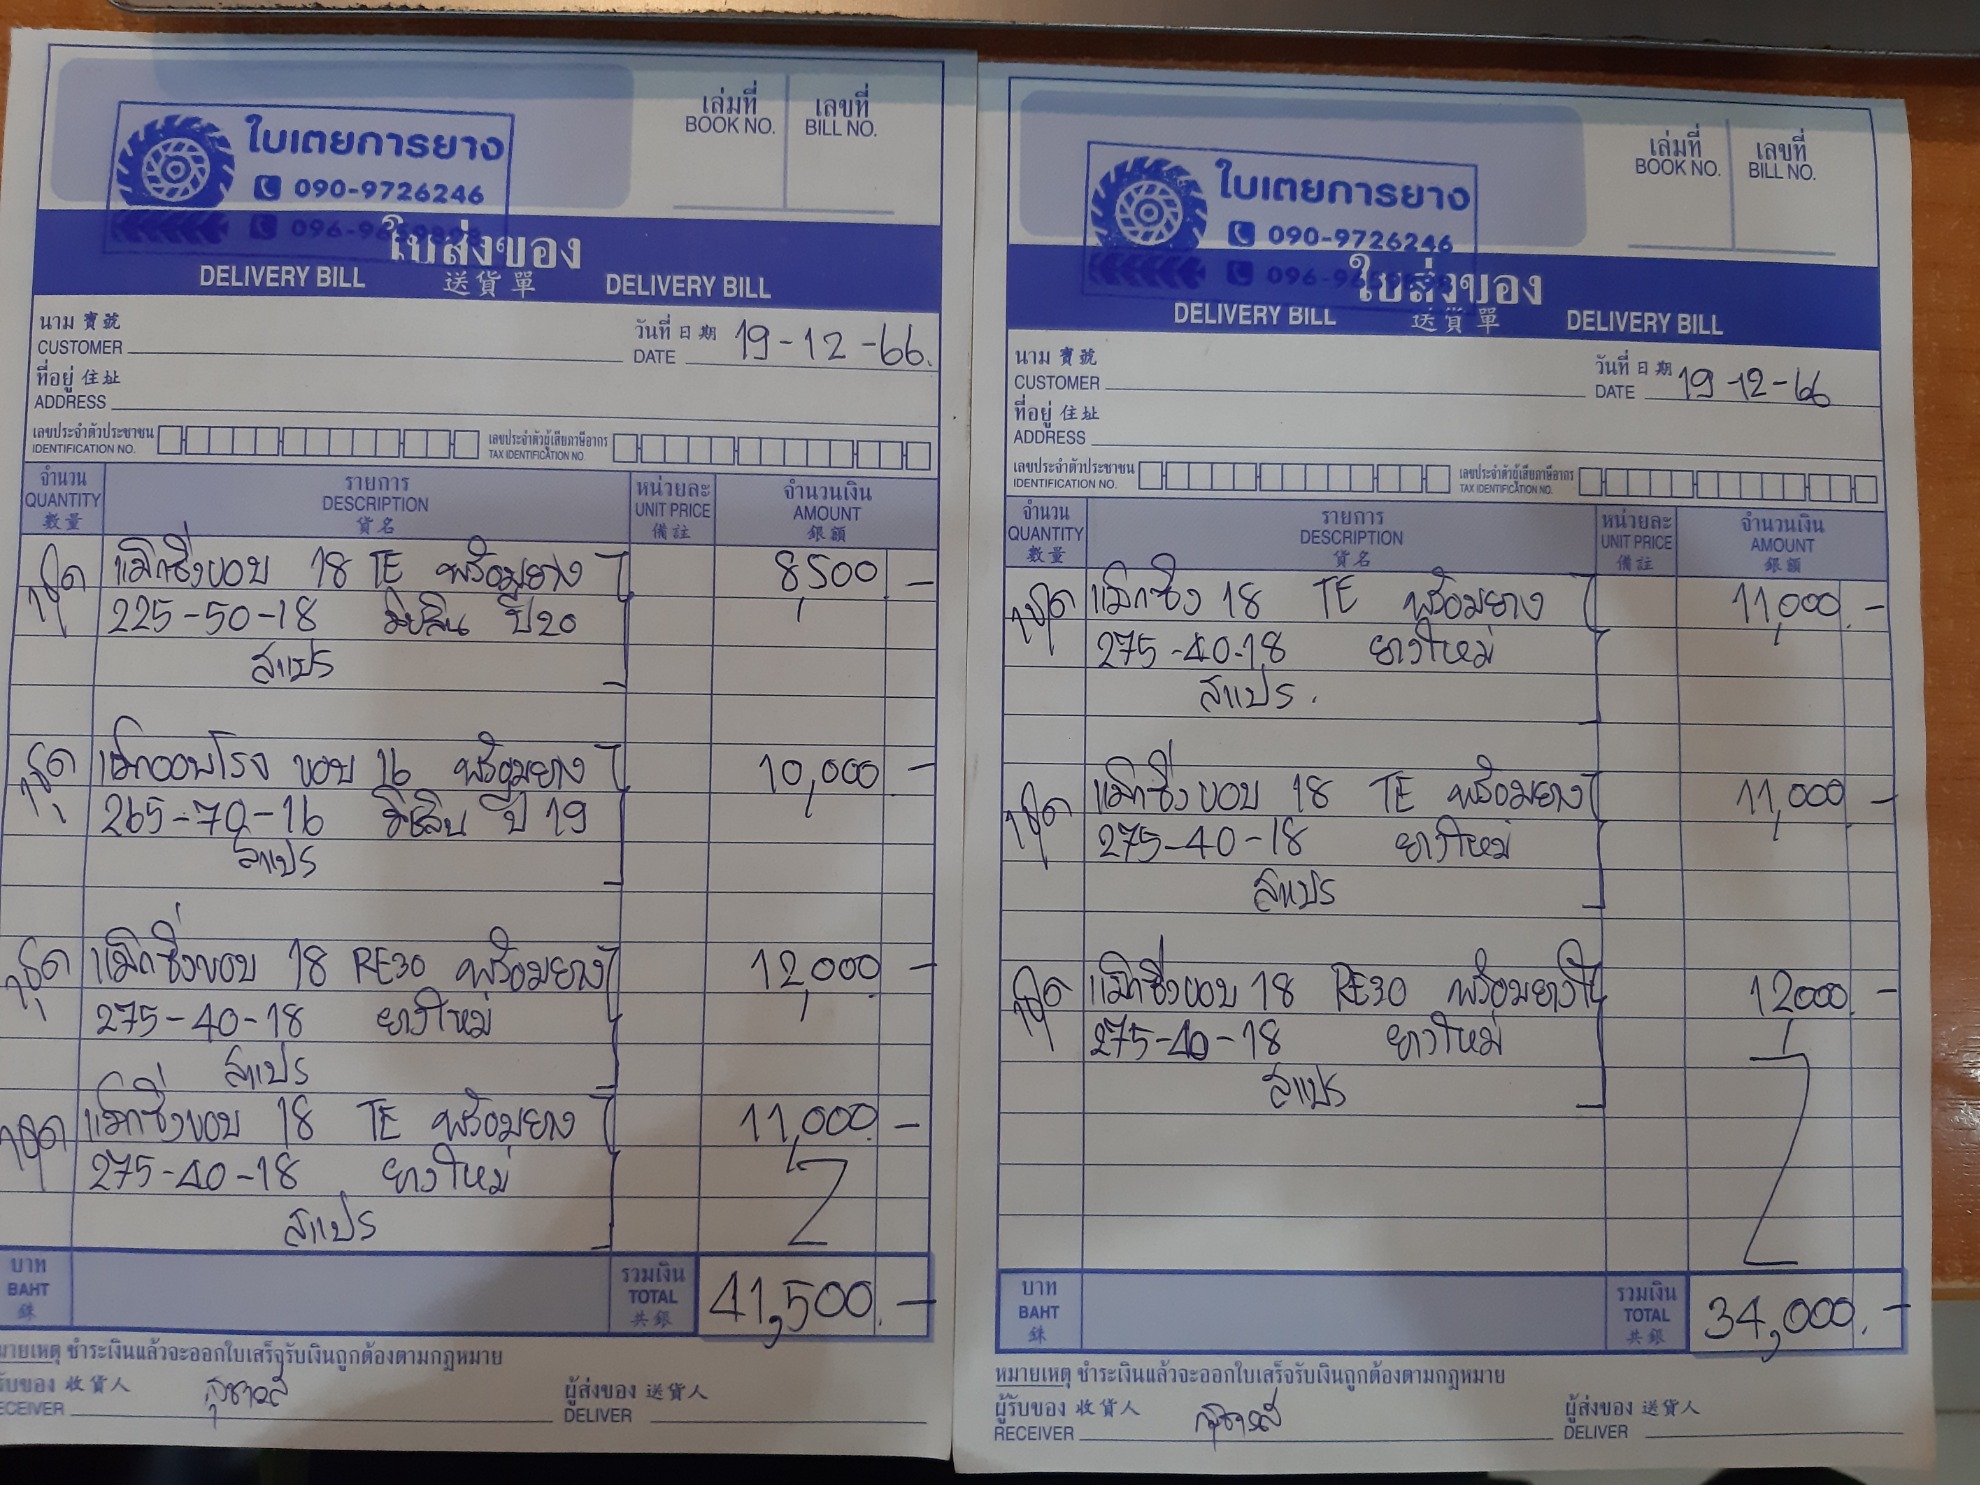 ใบเตยการยาง
090-9726246
เล่มที่ เลขที่
BOOK NO. BILL NO.
ใบส่งของ
DELIVERY BILL 送貨單 DELIVERY BILL
นาม 寶號 วันที่ 日期 19-12-66.
CUSTOMER DATE
ที่อยู่ 住址
ADDRESS
เลขประจำตัวประชาชน เลขประจำตัวผู้เสียภาษีอากร
IDENTIFICATION NO. TAX IDENTIFICATION NO.
จำนวน รายการ หน่วยละ จำนวนเงิน
QUANTITY DESCRIPTION UNIT PRICE AMOUNT
數量 貨名 備註 銀額
1ชุด แม็กซิ่งขอบ 18 TE พร้อมยาง 8,500 -
225-50-18 มิชลิน ปี 20
สแปร
1ชุด แม็กออบโรง ขอบ 16 พร้อมยาง 10,000 -
265-70-16 มิชลิน ปี 19
สแปร
1ชุด แม็กซิ่งขอบ 18 RE30 พร้อมยาง 12,000 -
275-40-18 ยางใหม่
สแปร
1ชุด แม็กซิ่งขอบ 18 TE พร้อมยาง 11,000 -
275-40-18 ยางใหม่
สแปร
บาท รวมเงิน
BAHT TOTAL 41,500.-
銖 共銀
หมายเหตุ ชำระเงินแล้วจะออกใบเสร็จรับเงินถูกต้องตามกฎหมาย
รับของ 收貨人 ผู้ส่งของ 送貨人
RECEIVER DELIVER
ใบเตยการยาง
090-9726246
เล่มที่ เลขที่
BOOK NO. BILL NO.
ใบส่งของ
DELIVERY BILL 送貨單 DELIVERY BILL
นาม 寶號 วันที่ 日期 19-12-66
CUSTOMER DATE
ที่อยู่ 住址
ADDRESS
เลขประจำตัวประชาชน เลขประจำตัวผู้เสียภาษีอากร
IDENTIFICATION NO. TAX IDENTIFICATION NO.
จำนวน รายการ หน่วยละ จำนวนเงิน
QUANTITY DESCRIPTION UNIT PRICE AMOUNT
數量 貨名 備註 銀額
1ชุด แม็กซิ่ง 18 TE พร้อมยาง 11,000.-
275-40-18 ยางใหม่
สแปร.
1ชุด แม็กซิ่งขอบ 18 TE พร้อมยาง 11,000 -
275-40-18 ยางใหม่
สแปร
1ชุด แม็กซิ่งขอบ 18 RE30 พร้อมยาง 12,000.-
275-40-18 ยางใหม่
สแปร
บาท รวมเงิน
BAHT TOTAL 34,000.-
銖 共銀
หมายเหตุ ชำระเงินแล้วจะออกใบเสร็จรับเงินถูกต้องตามกฎหมาย
ผู้รับของ 收貨人 ผู้ส่งของ 送貨人
RECEIVER DELIVER